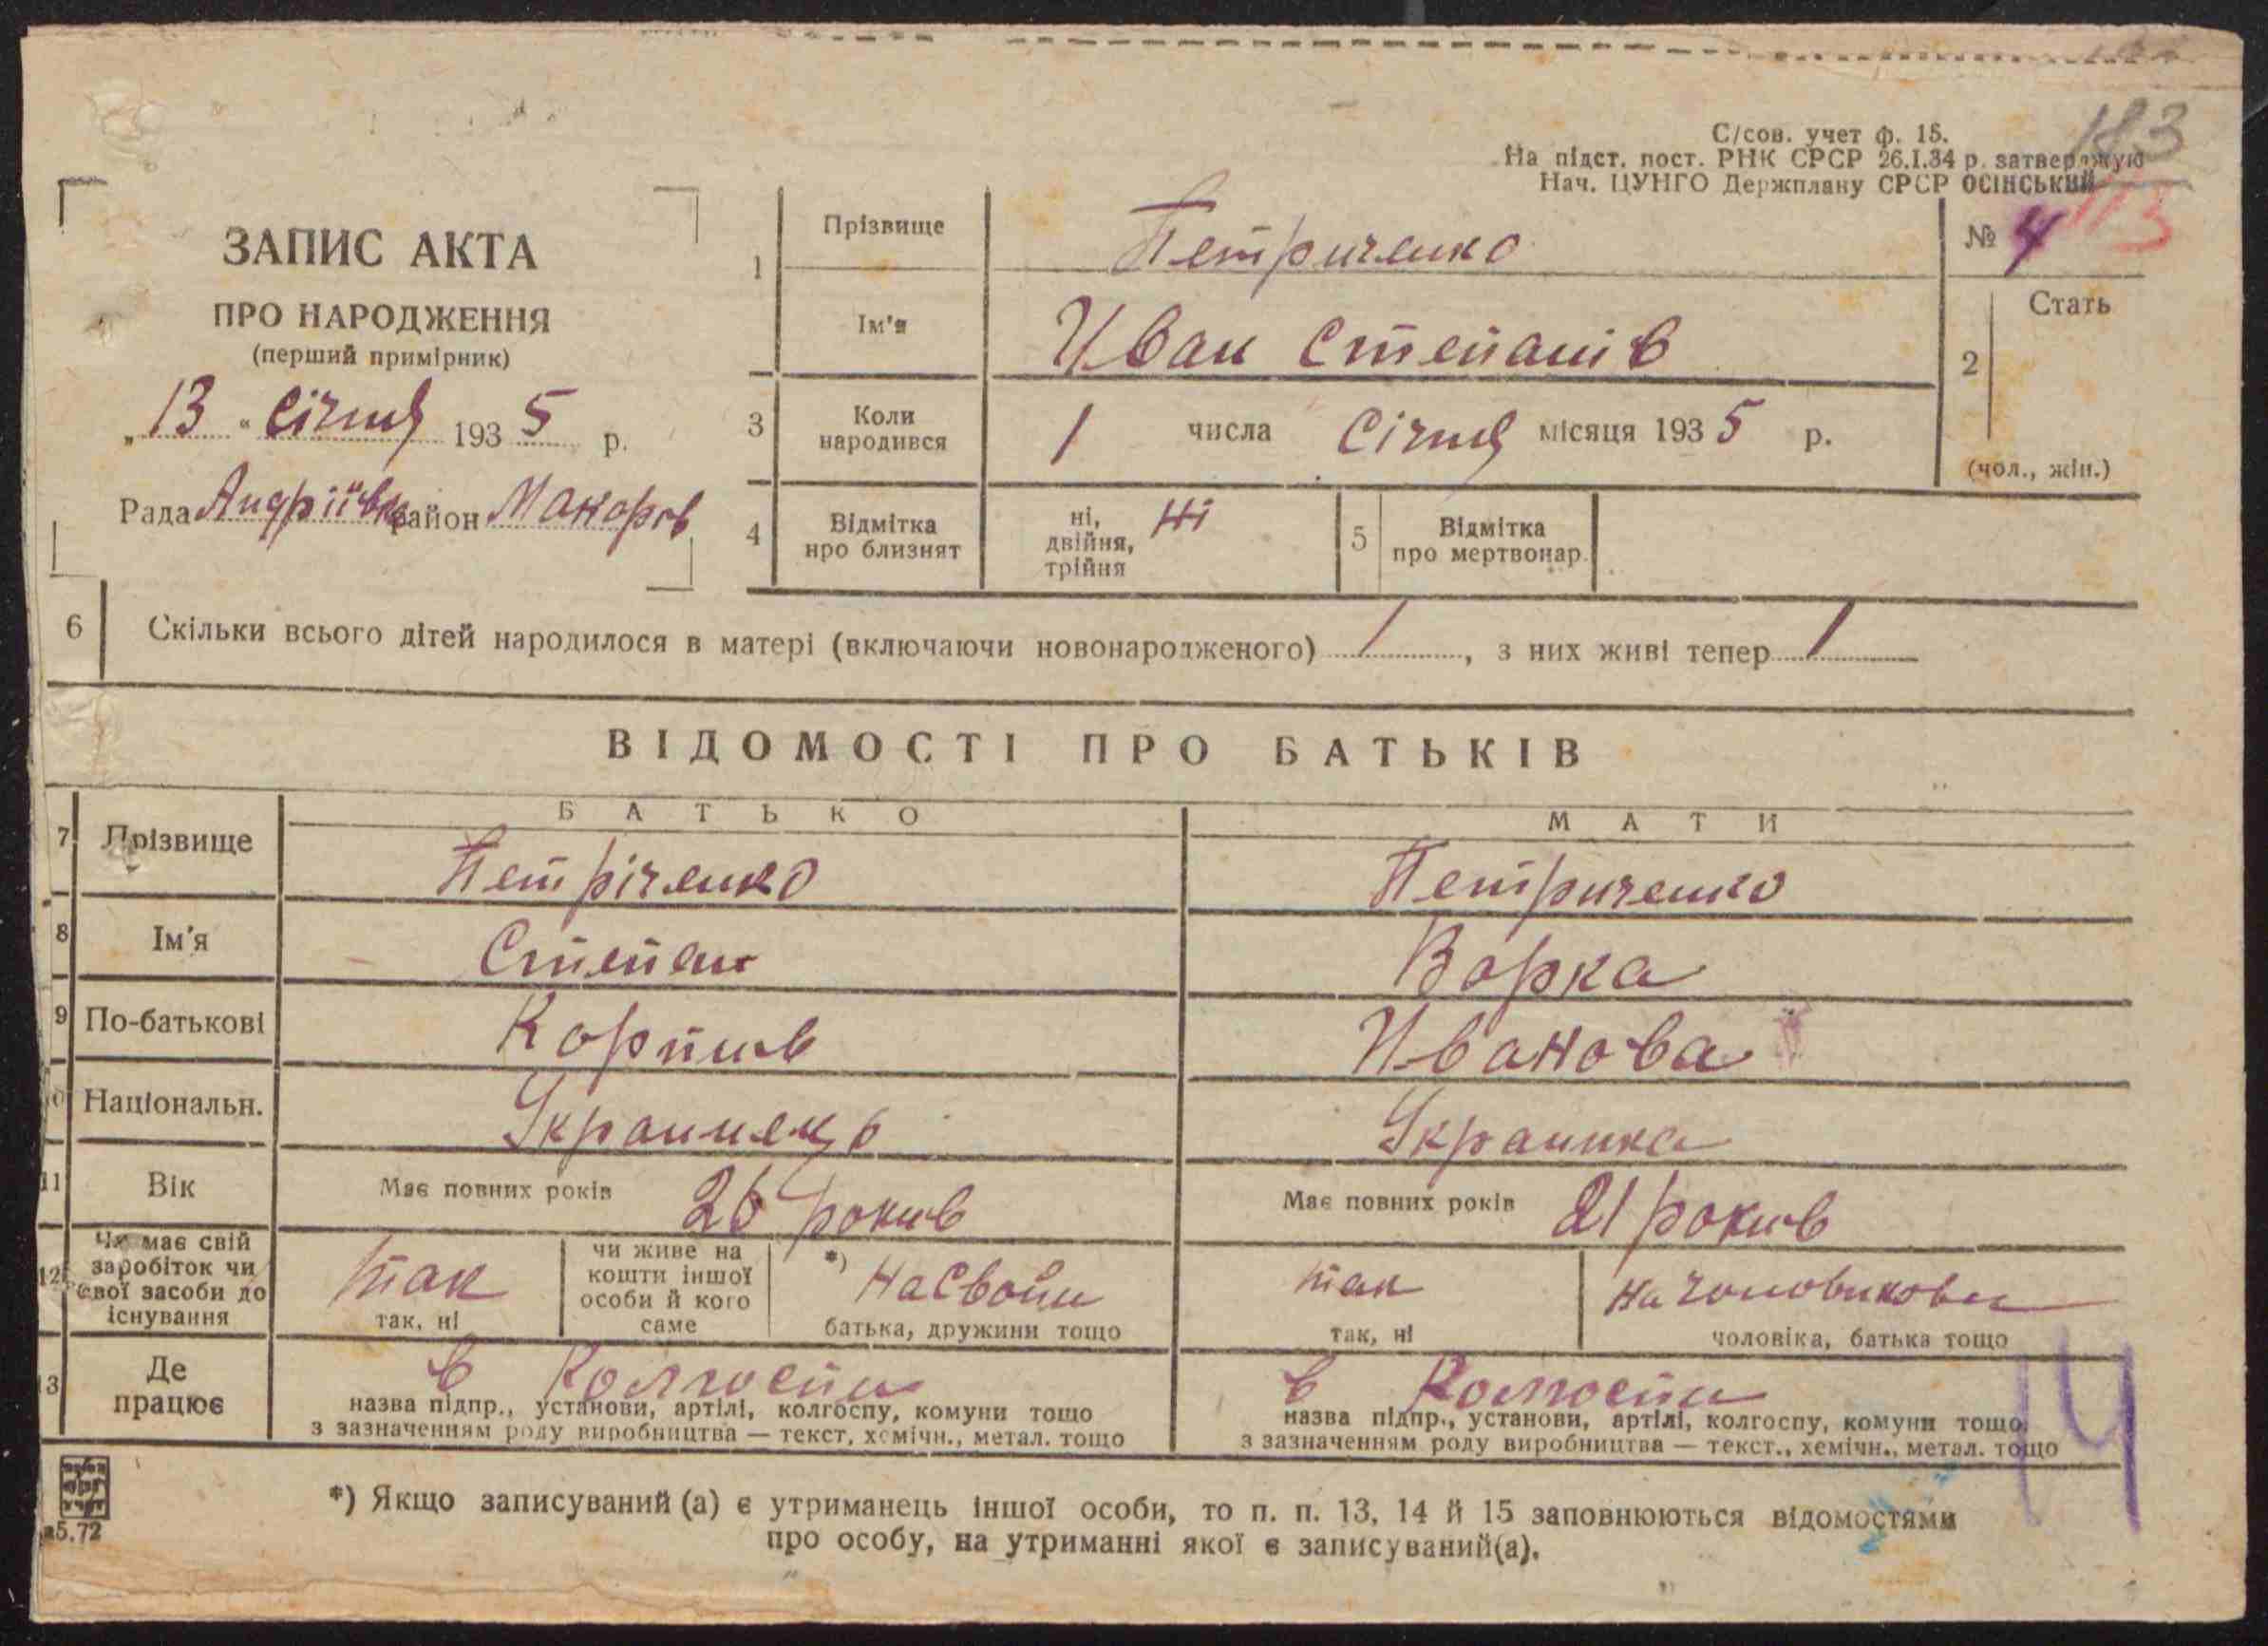 С/сов. учет ф. 15.
На підст. пост. РНК СРСР 26.I.34 р. затверджую
Нач. ЦУНГО Держплану СРСР ОСІНСЬКИЙ
183
113
ЗАПИС АКТА
ПРО НАРОДЖЕННЯ
(перший примірник)
„13“ Січня 1935 р.
Рада Андріївка район Макаров
1 Прізвище Петриченко
Ім'я Иван Степанів
№ 4
2 Стать
(чол., жін.)
3 Коли народився 1 числа Січня місяця 1935 р.
4 Відмітка про близнят ні, двійня, трійня Ні
5 Відмітка про мертвонар.
6 Скільки всього дітей народилося в матері (включаючи новонародженого) 1, з них живі тепер 1
ВІДОМОСТІ ПРО БАТЬКІВ
БАТЬКО МАТИ
7 Прізвище Петріченко Петриченко
8 Ім'я Степан Ворка
9 По-батькові Корпив Иванова
10 Національн. Украинець Украинка
11 Вік Має повних років 26 рокив Має повних років 21 рокив
12 Чи має свій заробіток чи свої засоби до існування
так
так, ні
чи живе на кошти іншої особи й кого саме
*) На Свойи
батька, дружини тощо
так
так, ні
на чоловикови
чоловіка, батька тощо
13 Де працює
в Колгоспи
назва підпр., установи, артілі, колгоспу, комуни тощо
з зазначенням роду виробництва — текст, хемічн., метал. тощо
в Колгоспи
назва підпр., установи, артілі, колгоспу, комуни тощо
з зазначенням роду виробництва — текст., хемічн., метал. тощо
14
*) Якщо записуваний (а) є утриманець іншої особи, то п. п. 13, 14 й 15 заповнюються відомостями
про особу, на утриманні якої є записуваний(а).
5.72